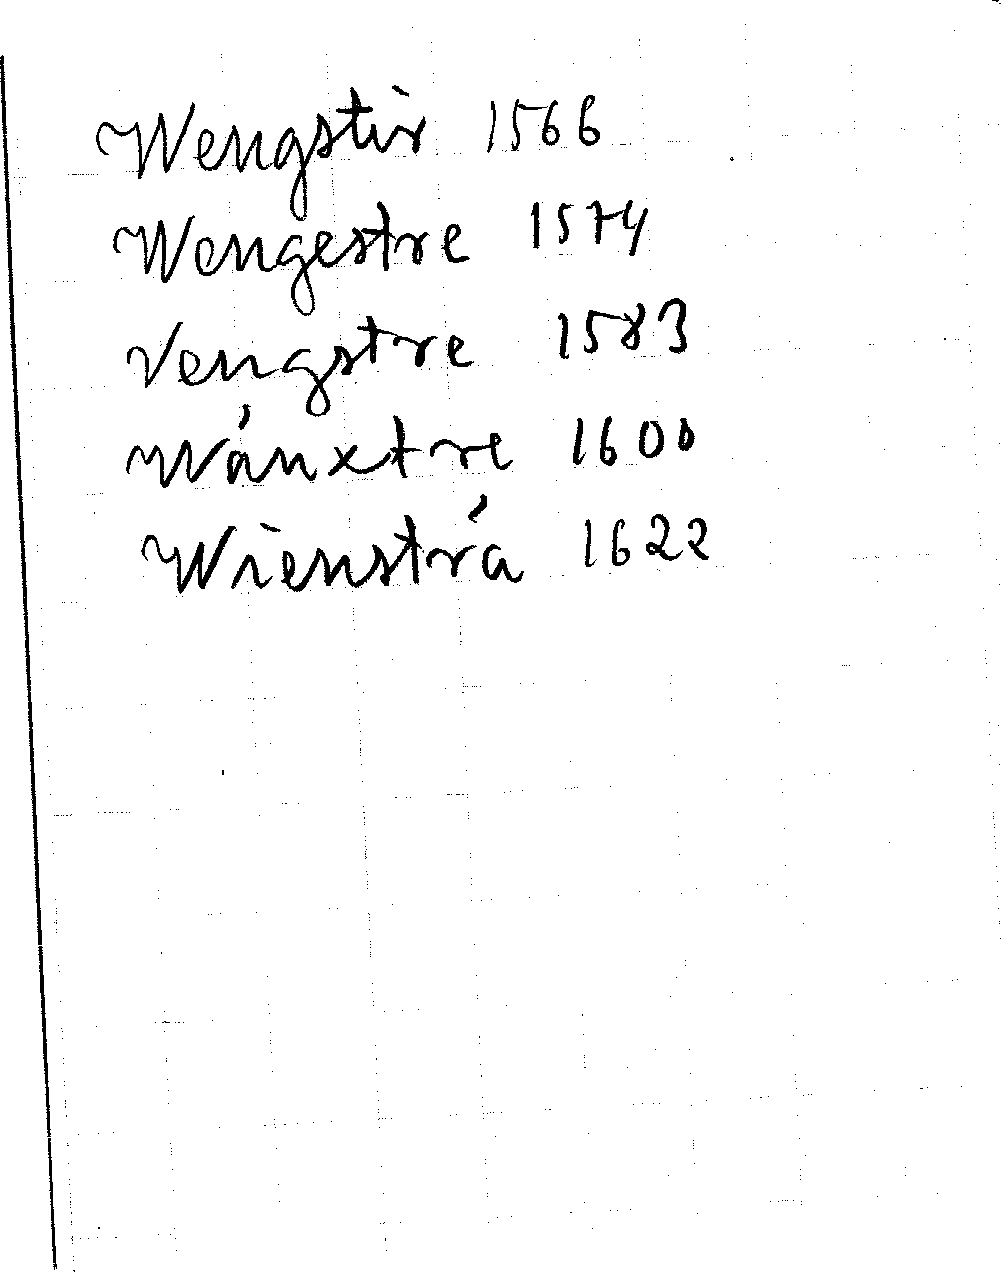 Wengstir 1566
Wengestre 1574
Vengstre 1583
Wánxtre 1600
Wienstrá 1622